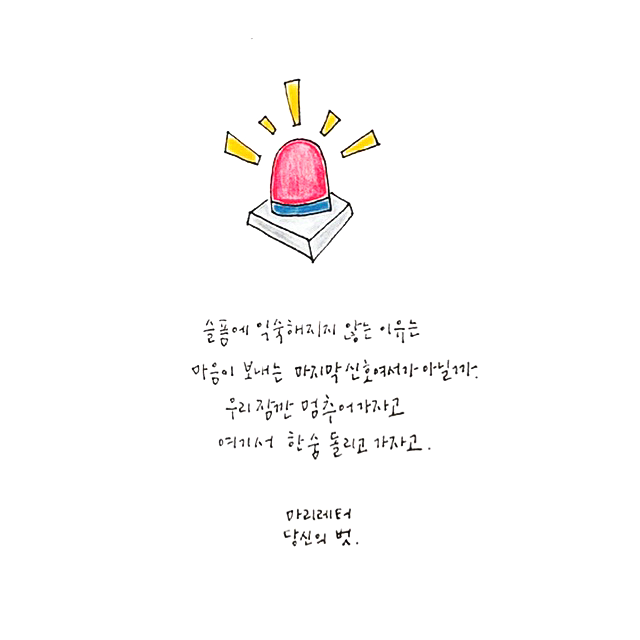 슬픔에 익숙해지지 않는 이유는
마음이 보내는 마지막 신호여서가 아닐까.
우리 잠깐 멈추어가자고
여기서 한숨 돌리고 가자고.
마리레터
당신의 벗.